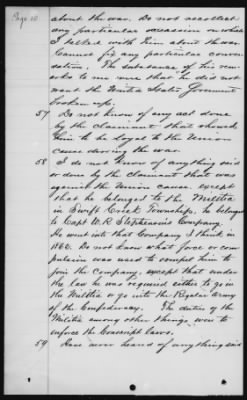 Page 10
about the war. Do not recollect
any particular occasion on which
I talked with him about the war.
Cannot fix any particular conver-
sation. The substance of his rem-
arks to me was that he did not
want the United States Government
broken up.
57 Do not know of any act done
by the claimant that showed
him to be loyal to the Union
cause during the war.
58 I do not know of anything said
or done by the claimant that was
against the Union cause. except
that he belonged to the Militia
in Swift Creek Township. he belonged
to Capt W. R. Stephensons Company.
He went into that Company I think in
1862. Do not know what force or com-
pulsion was used to compel him to
join the Company, except that under
the law he was required either to go in
the Militia or go into the Regular Army
of the Confederacy. The duties of the
Militia among other things were to
enforce the Conscript laws.
59 Have never heard of anything said